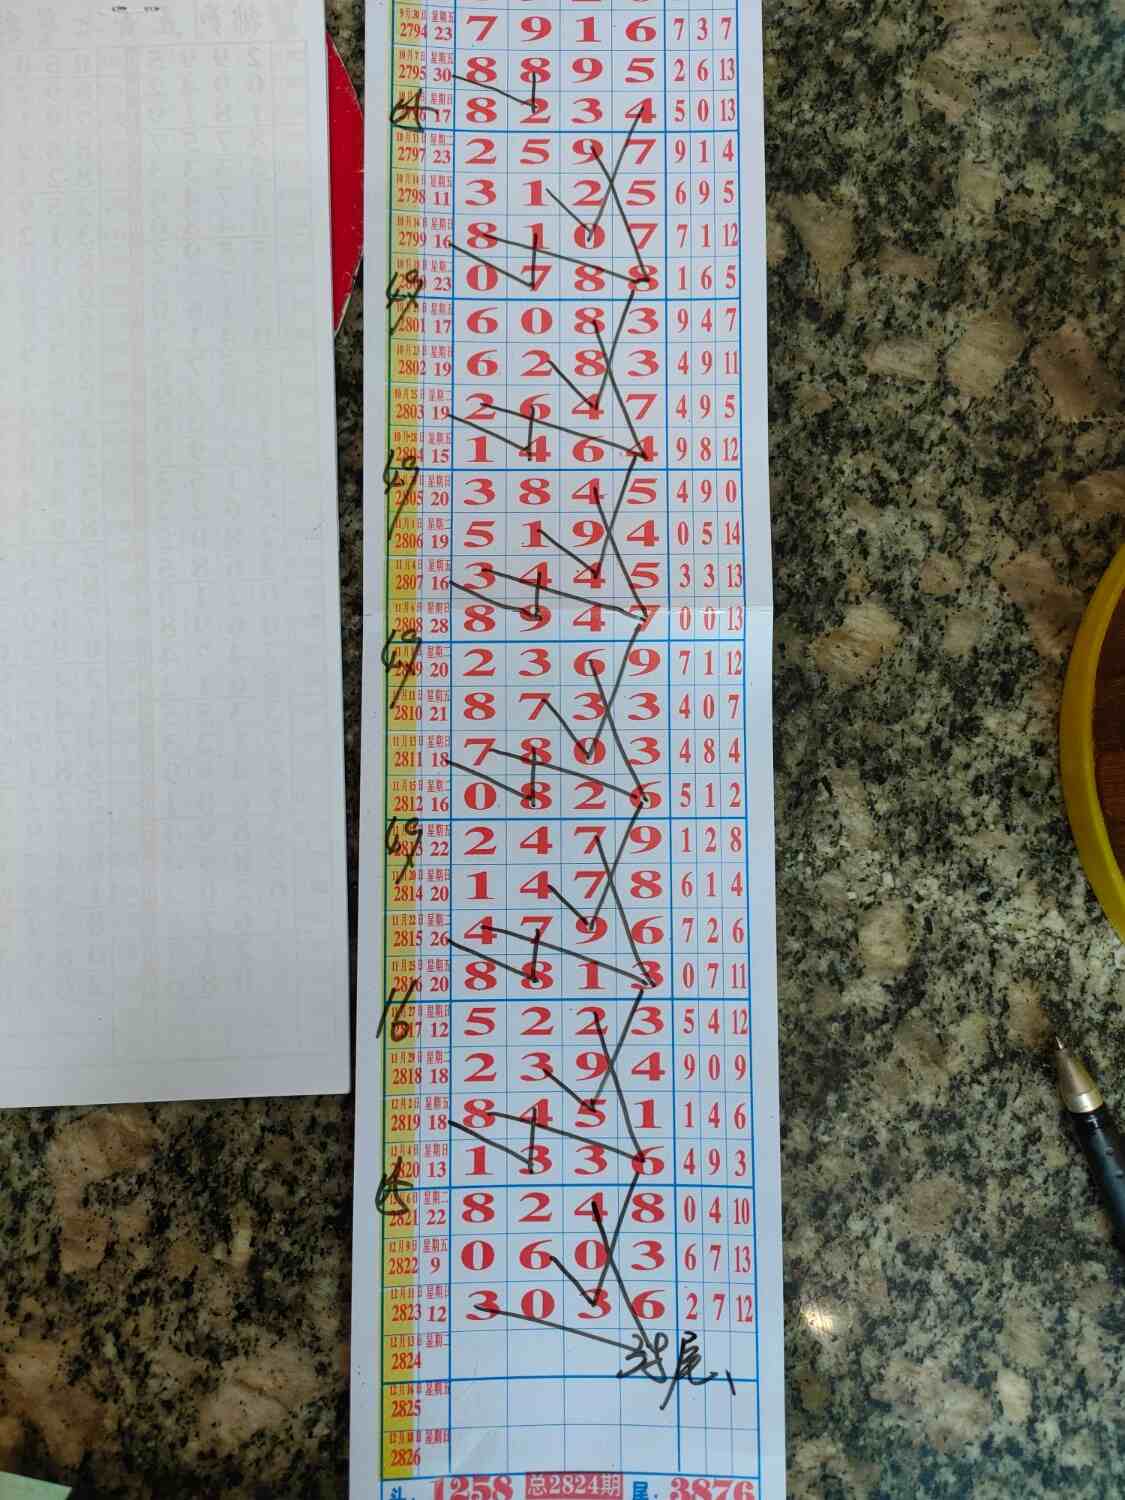 9月30日 星期五 2794 23 7 9 1 6 7 3 7
10月7日 星期五 2795 30 8 8 9 5 2 6 13
星期日 17 8 2 3 4 5 0 13
10月11日 星期二 2797 23 2 5 9 7 9 1 4
10月14日 星期五 2798 11 3 1 2 5 6 9 5
10月16日 星期日 2799 16 8 1 0 7 7 1 12
星期二 23 0 7 8 8 1 6 5
星期五 2801 17 6 0 8 3 9 4 7
10月23日 星期日 2802 19 6 2 8 3 4 9 11
10月25日 星期二 2803 19 2 6 4 7 4 9 5
10月28日 星期五 2804 15 1 4 6 4 9 8 12
星期日 2805 20 3 8 4 5 4 9 0
11月1日 星期二 2806 19 5 1 9 4 0 5 14
11月4日 星期五 2807 16 3 4 4 5 3 3 13
11月6日 星期日 2808 28 8 9 4 7 0 0 13
星期二 2809 20 2 3 6 9 7 1 12
11月11日 星期五 2810 21 8 7 3 3 4 0 7
11月13日 星期日 2811 18 7 8 0 3 4 8 4
11月15日 星期二 2812 16 0 8 2 6 5 1 2
星期五 2813 22 2 4 7 9 1 2 8
11月20日 星期日 2814 20 1 4 7 8 6 1 4
11月22日 星期二 2815 26 4 7 9 6 7 2 6
11月25日 星期五 2816 20 8 8 1 3 0 7 11
16
11月27日 星期日 2817 12 5 2 2 3 5 4 12
11月29日 星期二 2818 18 2 3 9 4 9 0 9
12月2日 星期五 2819 18 8 4 5 1 1 4 6
12月4日 星期日 2820 13 1 3 3 6 4 9 3
12月6日 星期二 2821 22 8 2 4 8 0 4 10
12月9日 星期五 2822 9 0 6 0 3 6 7 13
12月11日 星期日 2823 12 3 0 3 6 2 7 12
12月13日 星期二 2824
尾、
12月16日 星期五 2825
12月18日 星期日 2826
头: 1258 总2824期 尾: 3876